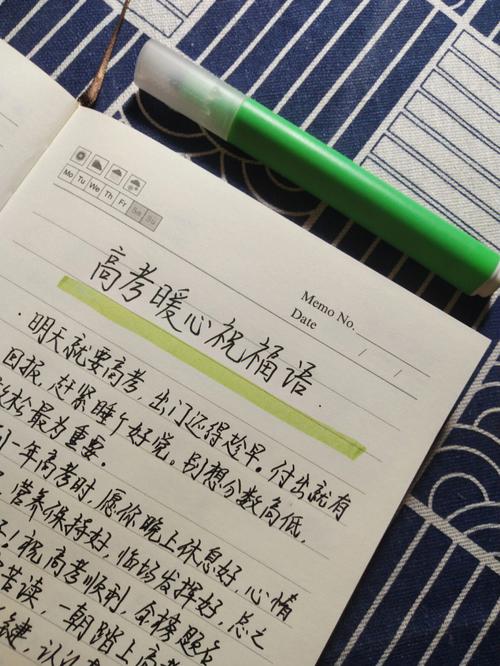 Mo Tu We Th Fr Sa Su
Memo No.
Date / /
高考暖心祝福语
·明天就要高考,出门还得趁早。付出就有
回报,赶紧睡个好觉。别想分数高低,
放松最为重要。
一年高考时,愿你晚上休息好,心情
营养保持好,临场发挥好,总之
!祝高考顺利,金榜题名
苦读,一朝踏上高考